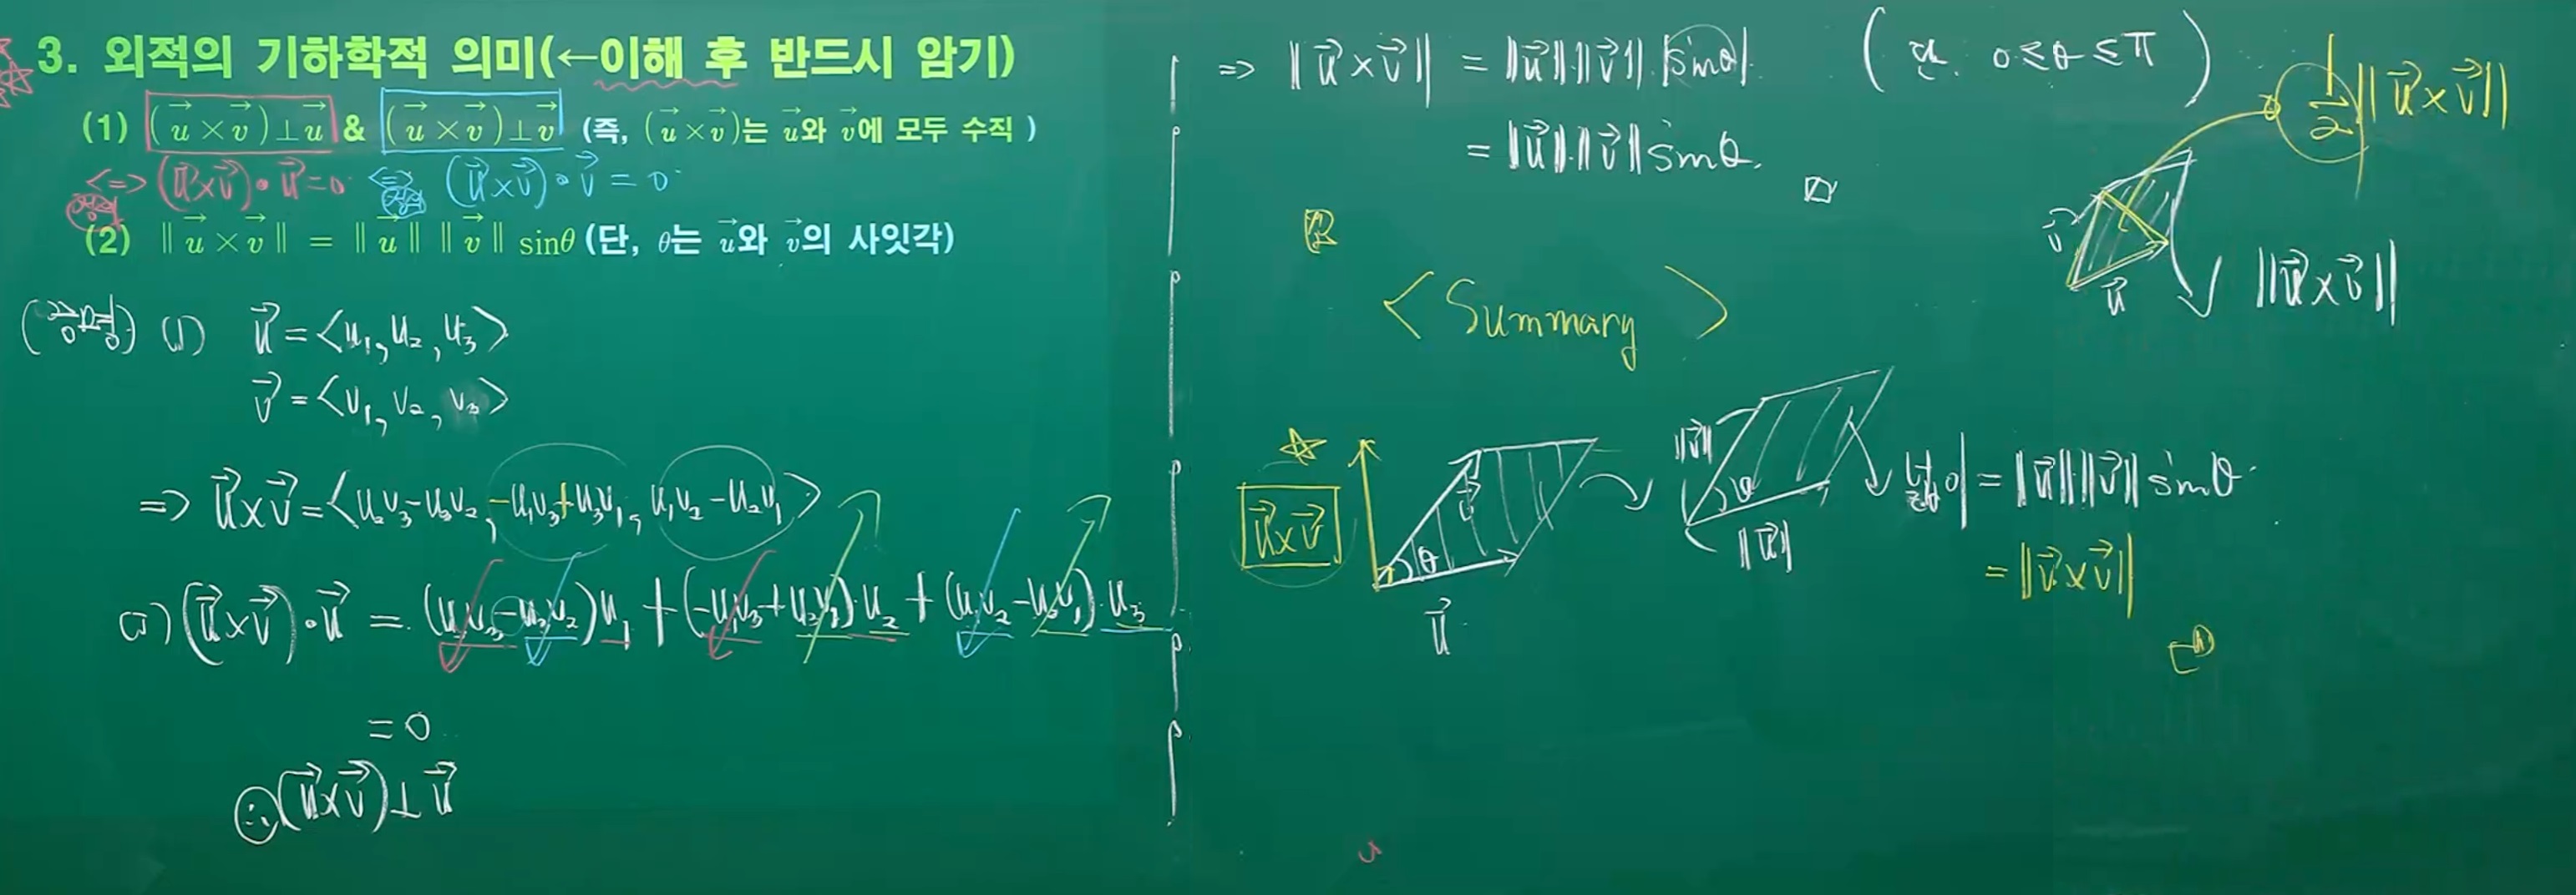 3. 외적의 기하학적 의미(←이해 후 반드시 암기)
(1) (u⃗ × v⃗)⊥u⃗ & (u⃗ × v⃗)⊥v⃗ (즉, (u⃗ × v⃗)는 u⃗와 v⃗에 모두 수직 )
<=> (u⃗×v⃗)•u⃗=0 <=> (u⃗×v⃗)•v⃗=0
(2) ‖u⃗ × v⃗‖ = ‖u⃗‖ ‖v⃗‖ sinθ (단, θ는 u⃗와 v⃗의 사잇각)
(증명) (1) u⃗=<u₁, u₂, u₃>
v⃗=<v₁, v₂, v₃>
=> u⃗×v⃗=<u₂v₃-u₃v₂, -u₁v₃+u₃v₁, u₁v₂-u₂v₁>
(u⃗×v⃗)•u⃗ = (u₂v₃-u₃v₂)u₁+(-u₁v₃+u₃v₁)•u₂+(u₁v₂-u₂v₁)•u₃
=0
∴(u⃗×v⃗)⊥u⃗
=> ‖u⃗×v⃗‖ = ‖u⃗‖•‖v⃗‖•|sinθ| ( 단, 0≤θ≤π )
= ‖u⃗‖•‖v⃗‖sinθ.
1/2‖u⃗×v⃗‖
v⃗
u⃗
‖u⃗×v⃗‖
<Summary>
u⃗×v⃗
v⃗
θ
u⃗
‖v⃗‖
θ
‖u⃗‖
넓이=‖u⃗‖‖v⃗‖sinθ
=‖u⃗×v⃗‖